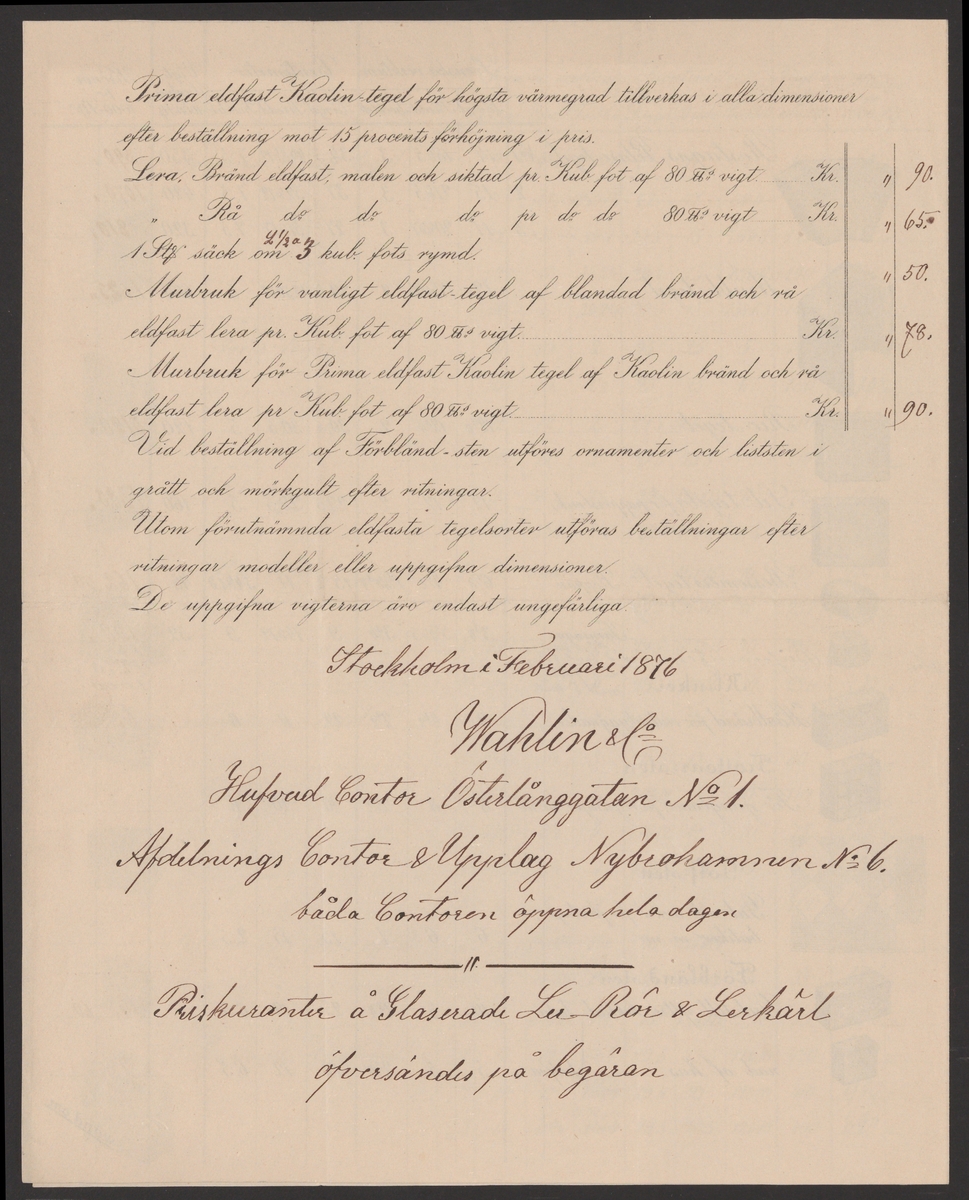 Prima eldfast Kaolin-tegel för högsta värmegrad tillverkas i alla dimensioner
efter beställning mot 15 procents förhöjning i pris.
Lera, Bränd eldfast, malen och siktad pr. Kub fot af 80 ℔ vigt Kr. " 90.
" Rå do do do pr do do 80 ℔ vigt Kr. " 65.
1 St säck om 2½ a 3 kub. fots rymd. " 50.
Murbruk för vanligt eldfast-tegel af blandad bränd och rå
eldfast lera pr. Kub. fot af 80 ℔ vigt. Kr. " 78.
Murbruk för Prima eldfast Kaolin tegel af Kaolin bränd och rå
eldfast lera pr Kub. fot af 80 ℔ vigt Kr. " 90.
Vid beställning af Förbländ-sten utföres ornamenter och liststen i
grått och mörkgult efter ritningar.
Utom förutnämnda eldfasta tegelsorter utföras beställningar efter
ritningar modeller eller uppgifna dimensioner.
De uppgifna vigterna äro endast ungefärliga.
Stockholm i Februari 1876
Wahlin & Co
Hufvud Contor Österlånggatan No 1.
Afdelnings Contor & Upplag Nybrohamnen No 6.
båda Contoren öppna hela dagen
"
Priskuranter å Glaserade Ler-Rör & Lerkärl
öfversändes på begäran